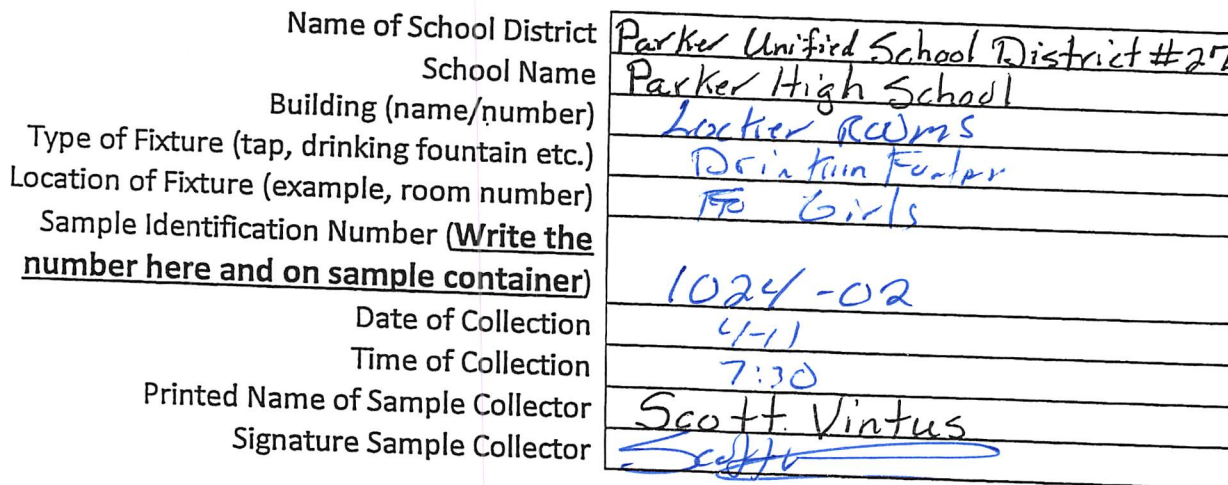 Name of School District Parker Unified School District #27
School Name Parker High School
Building (name/number) Locker Rooms
Type of Fixture (tap, drinking fountain etc.) Drinkin
Location of Fixture (example, room number) Girls
Sample Identification Number (Write the
number here and on sample container) 1024-02
Date of Collection 4-11
Time of Collection 7:30
Printed Name of Sample Collector Scott Vintus
Signature Sample Collector